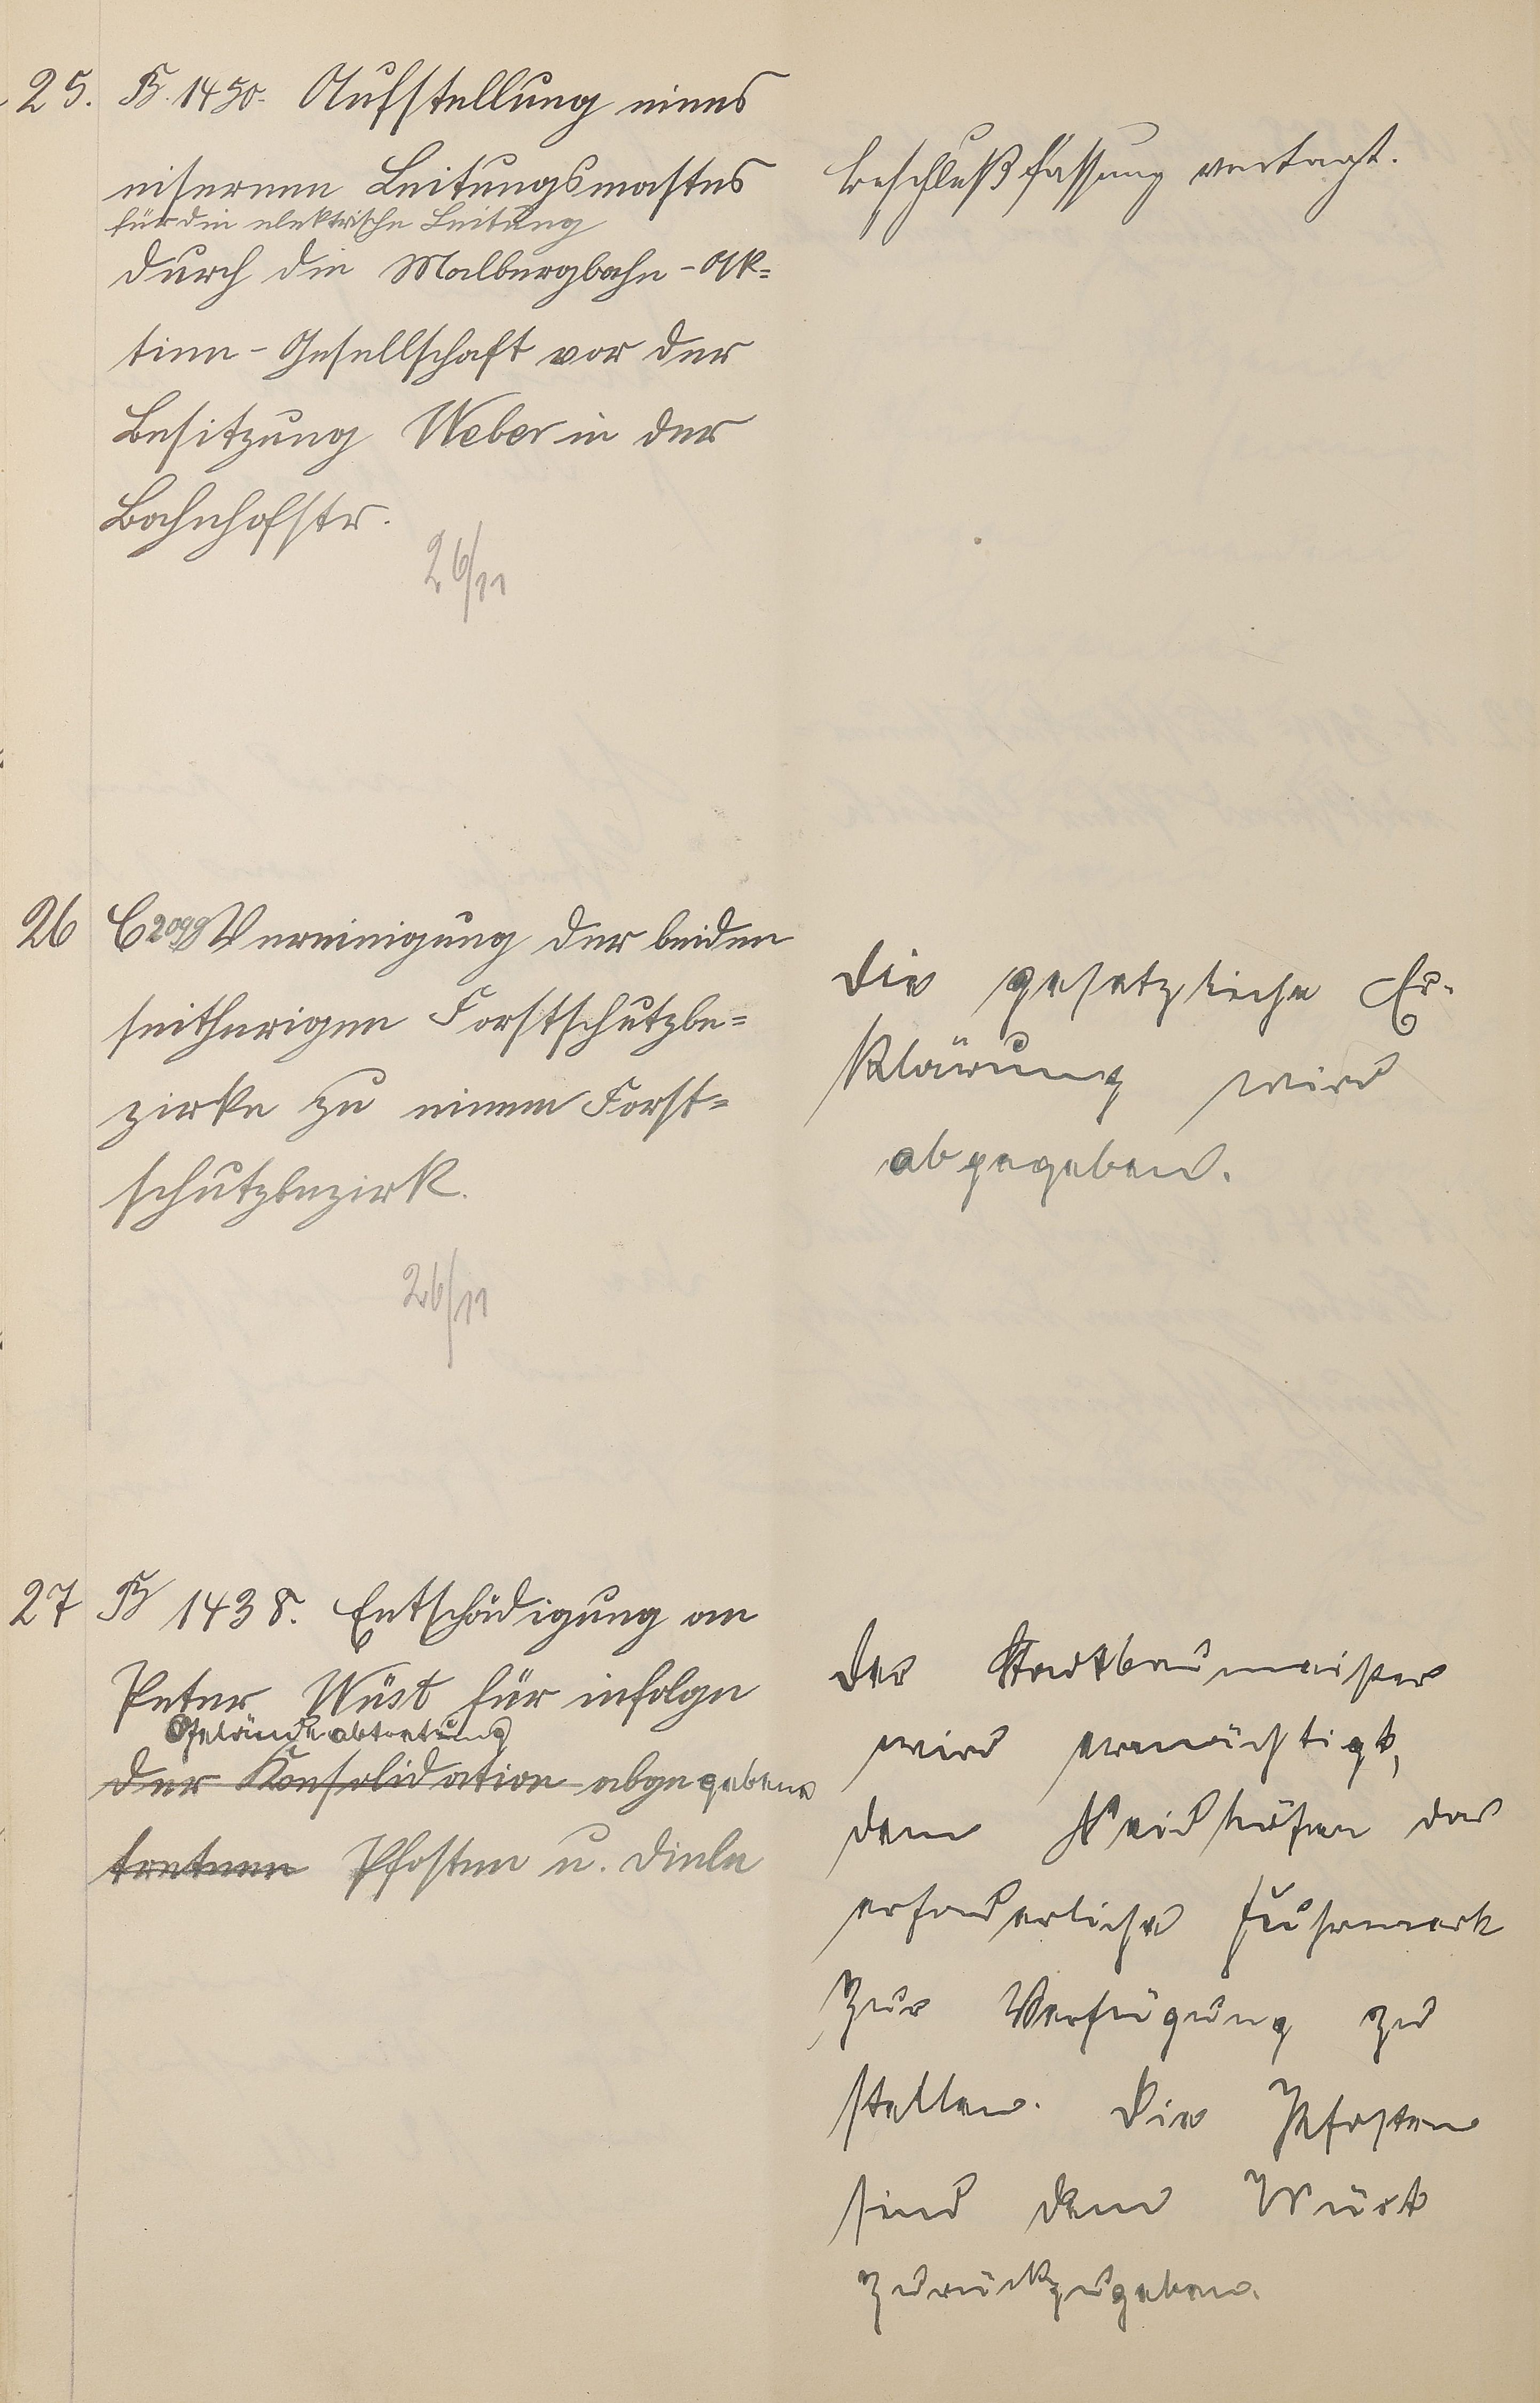 25. B. 1450. Aufstellung eines
eisernen Leitungsmastes
für die elektrische Leitung
durch die Malbergbahn-Ak=
tien-Gesellschaft vor der
Besitzung Weber in der
Bahnhofstr.
26/11
Beschlußfassung vertagt.
26 C 2099 Vereinigung der beiden
seitherigen Forstschutzbe=
zirke zu einem Forst=
schutzbezirk.
26/11
Die gesetzliche Er-
klärung wird
abgegeben.
27 B 1438. Entschädigung an
Peter Wüst für infolge
Geländeabtretung
der Konsolidation abgegebene
tretenen Pfosten u. Diele
Der Stadtbaumeister
wird ermächtigt,
dem das
erforderliche Fuhrwerk
zur Verfügung zu
stellen. Die Pfosten
sind dem Wüst
zurückzugeben.